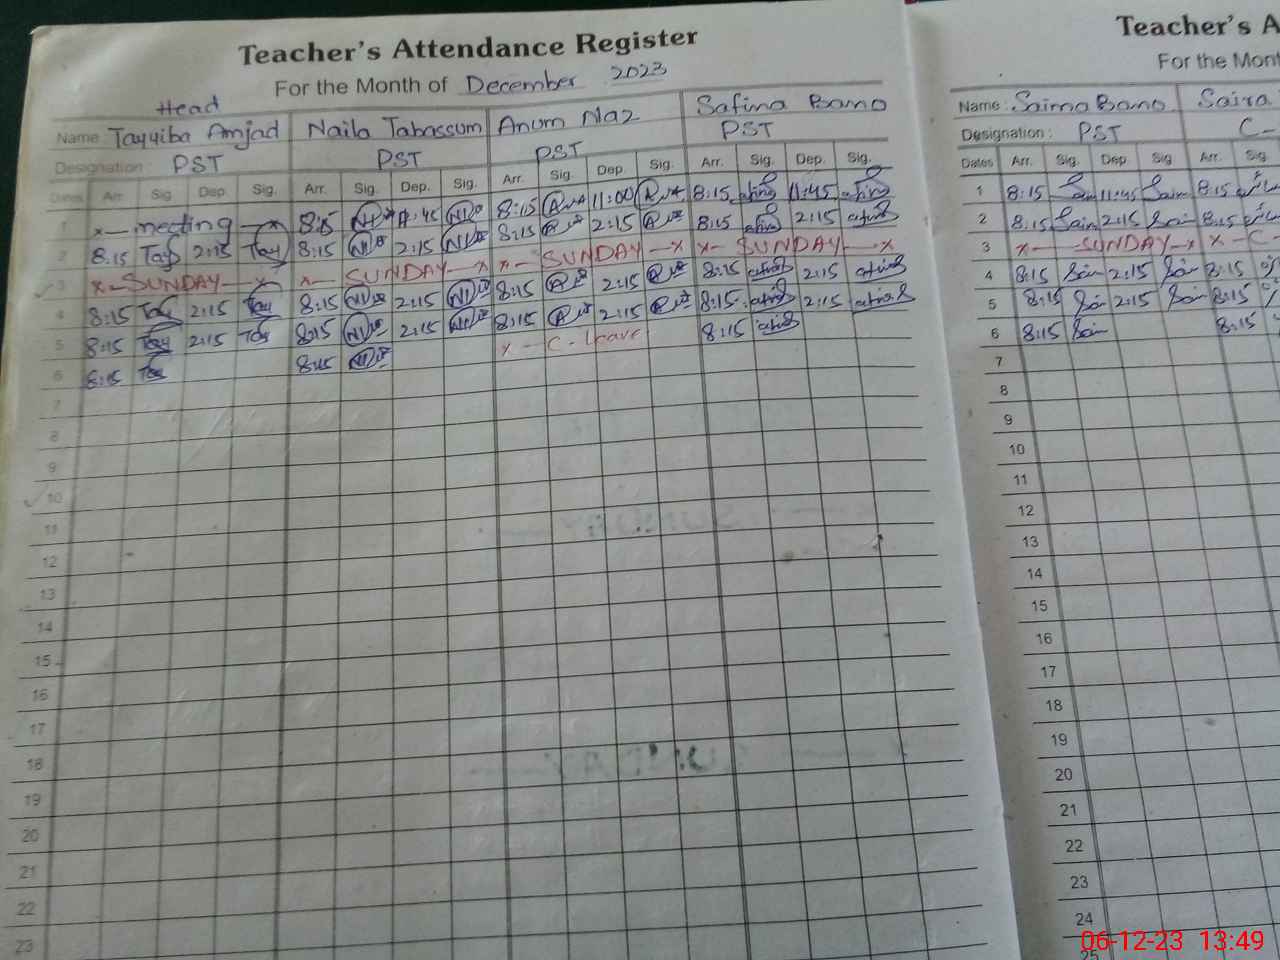 Teacher's Attendance Register
For the Month of December 2023
Head
Name Tayyiba Amjad Naila Tabassum Anum Naz Safima Bano
Designation: PST PST PST PST
Dates Arr. Sig. Dep. Sig. Arr. Sig. Dep. Sig. Arr. Sig. Dep. Sig. Arr. Sig. Dep. Sig.
1 x — meeting — x 8:15 11:45 8:15 11:00 8:15 11:45
2 8:15 Tay 2:15 Tay 8:15 2:15 8:15 2:15 8:15 2:15
x — SUNDAY — x x — SUNDAY — x x — SUNDAY — x x — SUNDAY — x
4 8:15 Tay 2:15 Tay 8:15 2:15 8:15 2:15 8:15 2:15
5 8:15 Tay 2:15 Tay 8:15 2:15 8:15 2:15 8:15 2:15
6 8:15 Tay 8:15 x — C - Leave 8:15
7
8
9
10
11
12
13
14
15
16
17
18
19
20
21
22
23
Teacher's A
For the Mont
Name: Saima Bano Saira
Designation: PST C-
Dates Arr. Sig. Dep. Sig Arr. Sig
1 8:15 Sam 11:45 Saim 8:15
2 8:15 Saim 2:15 Saim 8:15
3 x — SUNDAY — x x — C -
4 8:15 Sam 2:15 Sam 8:15
5 8:15 Sam 2:15 Sam 8:15
6 8:15 Sam 8:15
7
8
9
10
11
12
13
14
15
16
17
18
19
20
21
22
23
24
25
06-12-23 13:49